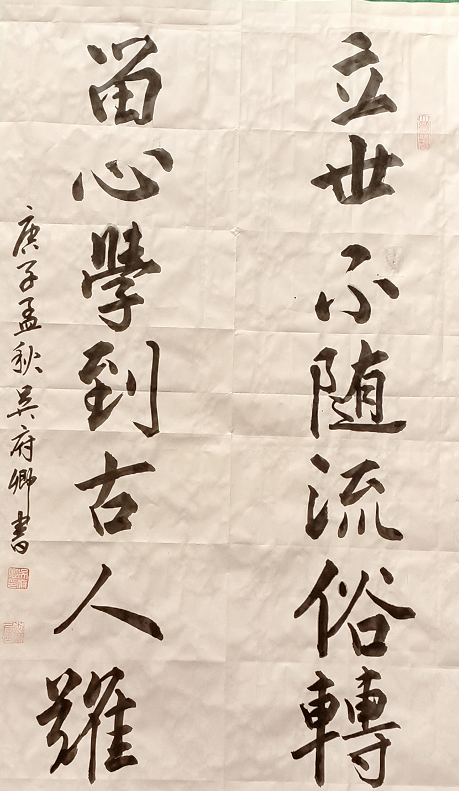 立世不随流俗轉
留心學到古人難
庚子孟秋吳府卿書